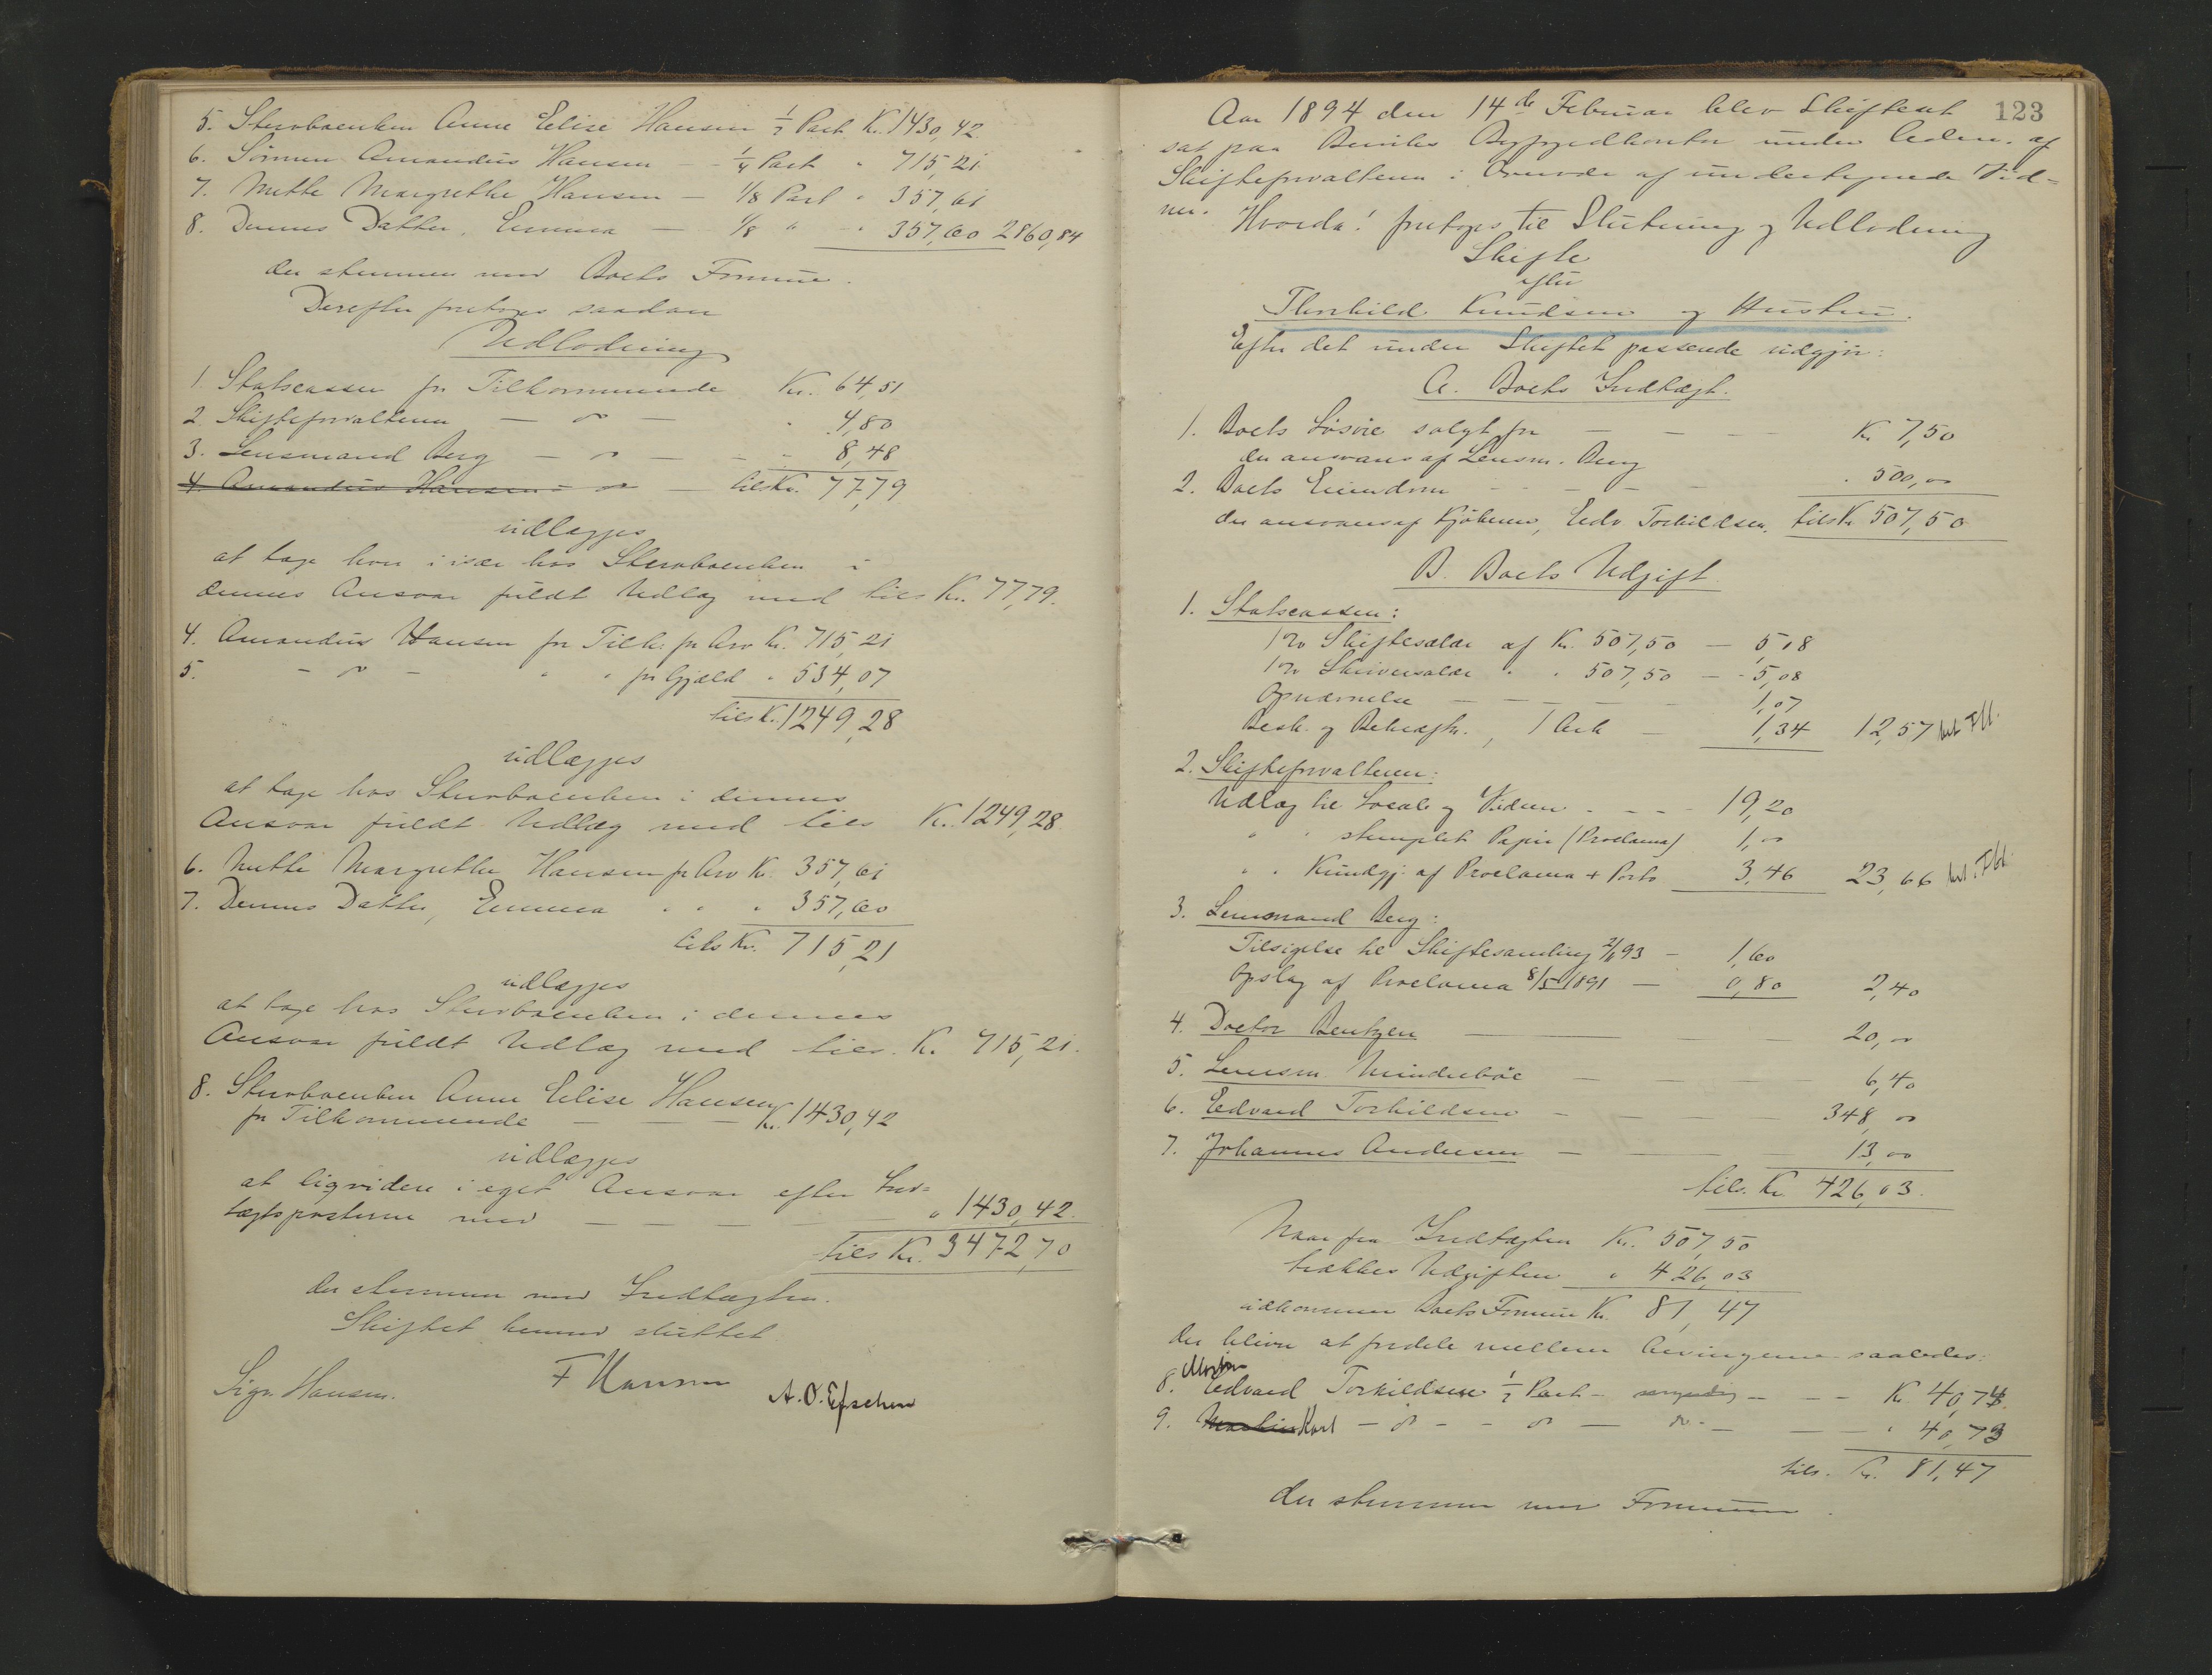 5. Sterboenken Anne Eelise Hansen ½ Part Kr. 1430,42
6. Sønnen Amandus Hansen — ¼ Part " 715,21
7. Mette Margrethe Hansen — 1/8 Part " 357,61
8. Dennes Datter, Emma — 1/8 " — " 357,60 2860,84
der stemmer med Boets Formue.
Derefter foretoges saadan
Udlodning
1. Statscassen for Tilkommende Kr. 64,51
2. Skifteforvalteren — " — " 4,80
3. Lensmand Berg — " — " 8,48
4. Amandus Hansen — " — tils Kr. 77,79
udlægges
at tage hver i især hos Sterboenken i
dennes Ansvar fuldt Udlæg med tils Kr. 77,79.
4. Amandus Hansen for Tilk. for Arv Kr. 715,21
5. — " — " " for Gjæld " 534,07
tils Kr. 1249,28
udlægges
at tage hos Sterboenken i dennes
Ansvar fuldt Udlæg med tils Kr. 1249,28
6. Mette Margrethe Hansen for Arv Kr. 357,61
7. Dennes Datter, Emma " " " 357,60
tils Kr. 715,21
udlægges
at tage hos Sterboenken i dennes
Ansvar fuldt Udlæg med tils. Kr. 715,21.
8. Sterboenken Anne Elise Hansen
for Tilkommende — — — Kr. 1430,42
udlægges
at liqvidere i eget Ansvar efter Ind=
tægtsposterne med — — — " 1430,42.
tils Kr. 3472,70
der stemmer med Indtægten.
Skiftet hermed sluttet.
Sign. Hansen. F Hansen A. O. Efschen
123
Aar 1894 den 14de Februar blev Skifteret
sat paa Byfogedkontor under Leden. af
Skifteforvalteren i Overvær af undertegnede Vid=
ner. Hvorda! foretoges til Slutning og Udlodning
Skifte
efter
Thorkild Knudsen og Hustru.
Efter det under Skiftet passerede udgjør:
A. Boets Indtægt.
1. Boets Løsøre solgt for — — — Kr 7,50
der ansvares af Lensm. Berg
2. Boets Eiendom — — — " 500,00
der ansvares af Kjøberen, Edv Torkildsen. tils Kr 507,50
B. Boets Udgift
1. Statscassen:
1% Skiftesalær af Kr. 507,50 — 5,08
1% Skriversalær " " 507,50 — " 5,08
Opnævnelse — — — — 1,07
Besk. og Bekræft., 1 Ark — 1,34 12,57
2. Skifteforvalteren:
Udlæg til Locale og Vidner — — — 19,20
" " stemplet Papir (Proclama) 1,00
" " Kundgj. af Proclama + Porto 3,46 23,66
3. Lensmand Berg:
Tilsigelse til Skiftesamling 93 — 1,60
Opslag af Proclama 8/5 1891 — 0,80 2,40
4. Doctor Bentzen — — — 20,00
5. Lensm. Mindrebøe — — — 6,40
6. Edvard Torkildsen — — — 348,00
7. Johannes Andersen — — — 13,00
tils. Kr. 426,03.
Naar fra Indtægten Kr. 507,50
trækkes Udgiften " 426,03
udkommer Boets Formue Kr. 81,47
der bliver at fordele mellem Arvingerne saaledes:
8. Edvard Torkildsen ½ Part — — — Kr 40,74
9. Karl — " — — " — " — — — " 40,73
tils. Kr. 81,47
der stemmer med Formuen.